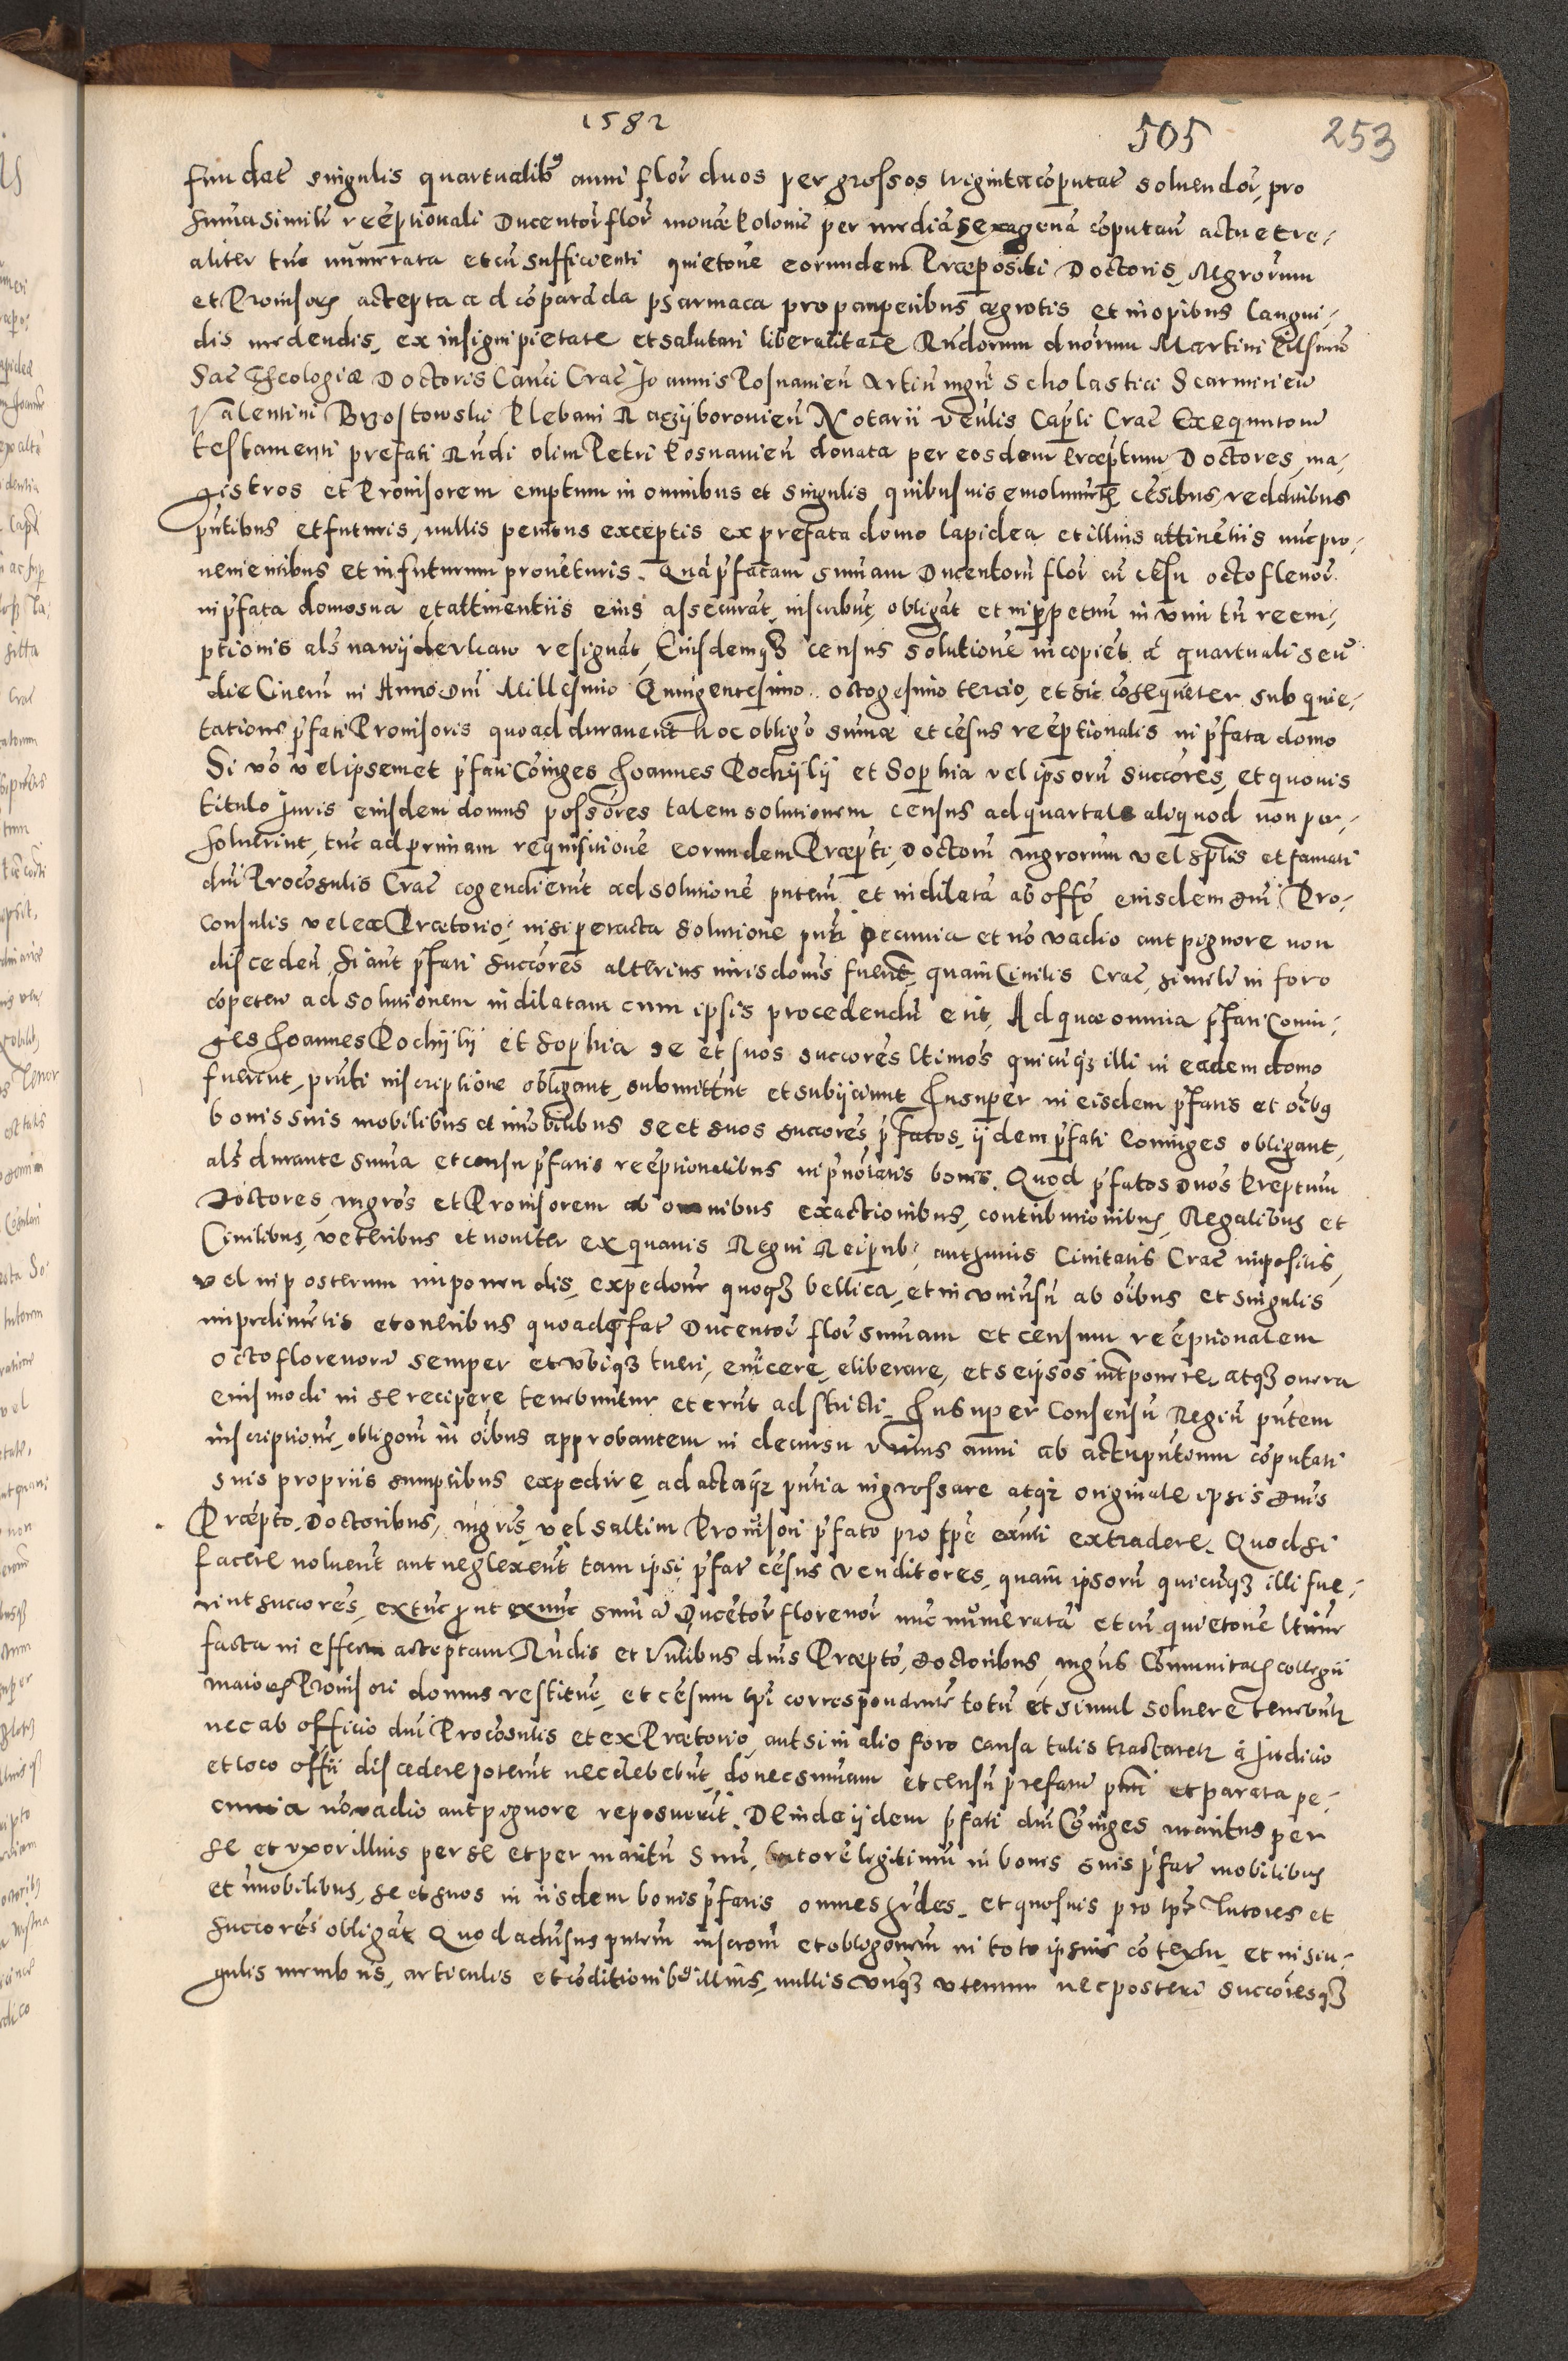 1582
505 253
fundat singulis quartualibus anni flor duos per grossos triginta computat soluendor, pro
summa simili reemptionali Ducentor flor monetae Poloniae per mediā sexagenā computan actu et re-
aliter tūc numerata et cū sufficienti quietone eorundem Præpositi Doctoris, Mgrorum
et Prouisoris accepta ad cōparāda pharmaca pro pauperibus ægrotis et inopibus langui-
dis medendis, ex insigni pietate et salutari liberalitate Rndorum dnorum Martini
Sac Theologiæ Doctoris Canci Crac Joannis Posnanien Artiū mgri Scholastici Scarmirien
Valentini Brzostowski Plebani Raczyborouien Notarii veñlis Capli Crac Exequutorū
testamenti prefati Rndi olim Petri Posnanien donata per eosdem Præptum, Doctores, ma-
gistros et Prouisorem emptum in omnibus et singulis quibusuis emolumētis, cēsibus, redditibus
pñtibus et futuris, nullis penitus exceptis ex prefata domo lapidea et illius attinētiis nūc pro-
uenientibus et in futurum prouēturis. Quā pfatam sumam Ducentorū flor cū cēsu octo florenor
in pfata domo sua et attinentiis eius assecurāt, inscribūt, obligāt et in perpetuū in vim tn reem-
ptionis als na wyderkaw resignāt, Eiusdemqz census solutionē incipiēt a quartuali seu
die Cinerū in Anno Dni Millesimo Quingentesimo octogesimo tercio, et sic cōsequēter sub quie-
tatione pfati Prouisoris quoad durauerit hoc obligo sumæ et cēsus reēptionalis in pfata domo
Si vō vel ipsemet pfati Cōiuges Joannes Pochylij et Sophia vel ipsorū succōres, et quouis
titulo Juris eiusdem domus possōres talem solutionem census ad quartale aliquod non per-
soluerint, tūc ad primam requisitionē eorundem Præpti, Doctorū mgrorum vel splis et famati
dni Procōsulis Crac cogendi erūt ad solutionē pntem et indilatā ab offo eiusdem dni Pro-
consulis vel ex Prætorio, nisi peracta solutione pnti pecunia et nō vadio aut pignore non
disceden, Si aūt pfati succōres alterius iuris domus fuerīt quam Ciuilis Crac, simili in foro
cōpeten ad solutionem indilatam cum ipsis procedendū erit. Ad quæ omnia pfati Coniu-
ges Joannes Pochylij et Sophia se et suos succōres ltimos quicūqz illi in eadem domo
fuerint, pnti inscriptione obligant, submittūt et subijciunt Insuper in eisdem pfatis et oibus
bonis suis mobilibus et imobilibus se et suos succōres pfatos, ijdem pfati Coniuges obligant,
als durante suma et censu pfatis reēptionalibus in pnōtatis bonis. Quod pfatos dnos Præptum
Doctores, mgros et Prouisorem ab omnibus exactionibus, contributionibus, Regalibus et
Ciuilibus, veteribus et nouiter ex quauis Regni Reipub: aut huius Ciuitatis Crac impositis,
vel in posterum imponendis, expedone quoqz bellica, et in vniuersū ab oibus et singulis
impedimētis et oneribus quoad pfat Ducentor flor sumam et censum reēptionalem
octo florenorū semper et vbiqz tueri, euincere, eliberare, et seipsos intponere, atqz onera
eiusmodi in se recipere tenebuntur et erūt adstricti. Insuper Consensū Regiū pntem
inscriptionē, obligonē in oibus approbantem in decursu vnius anni ab actu pntium cōputati
suis propriis sumptibus expedire, ad actaqz pntia ingrossare atqz originale ipsis dnis
Præpto, Doctoribus, mgris, vel saltim Prouisori pfato pro tpe exnti extradere. Quod si
facere noluerīt aut neglexerīt tam ipsi pfat cēsus venditores, quam ipsorū quicūqz illi fue-
rint succōres, ex tūc prout ex nūc sumā Ducētor florenor nūc numeratā et cū quietone ltime
facta in effectu acceptam Rndis et Vnlibus dnis Præpto, Doctoribus, mgris Cōmunitatis collegii
maioris Prouisori domus restituere, et cēsum tpi correspondentē totū et simul soluere tenebūtur
nec ab officio dni Procōsulis et ex Prætorio, aut si in alio foro causa talis tractaretur a Judicio
et loco offii discedere poterūt nec debebūt, donec sumam et censū prefatū pnti et parata pe-
cunia nō vadio aut pignore reposuerīt. Deinde ijdem pfati dni Cōiuges maritus per
se et vxor illius per se et per maritū suū, tutorē legitimū in bonis suis pfat mobilibus
et imobilibus, se et suos in iisdem bonis pfatis omnes hrdes, et quosuis pro tpe Tutores et
succōres obligāt Quod aduersus pntem inscronē et obligonem in toto ipsius cōtextu et in sin-
gulis membris, articulis et cōditionibus illius, nullis vnqz vtentur nec posteri succōresqz